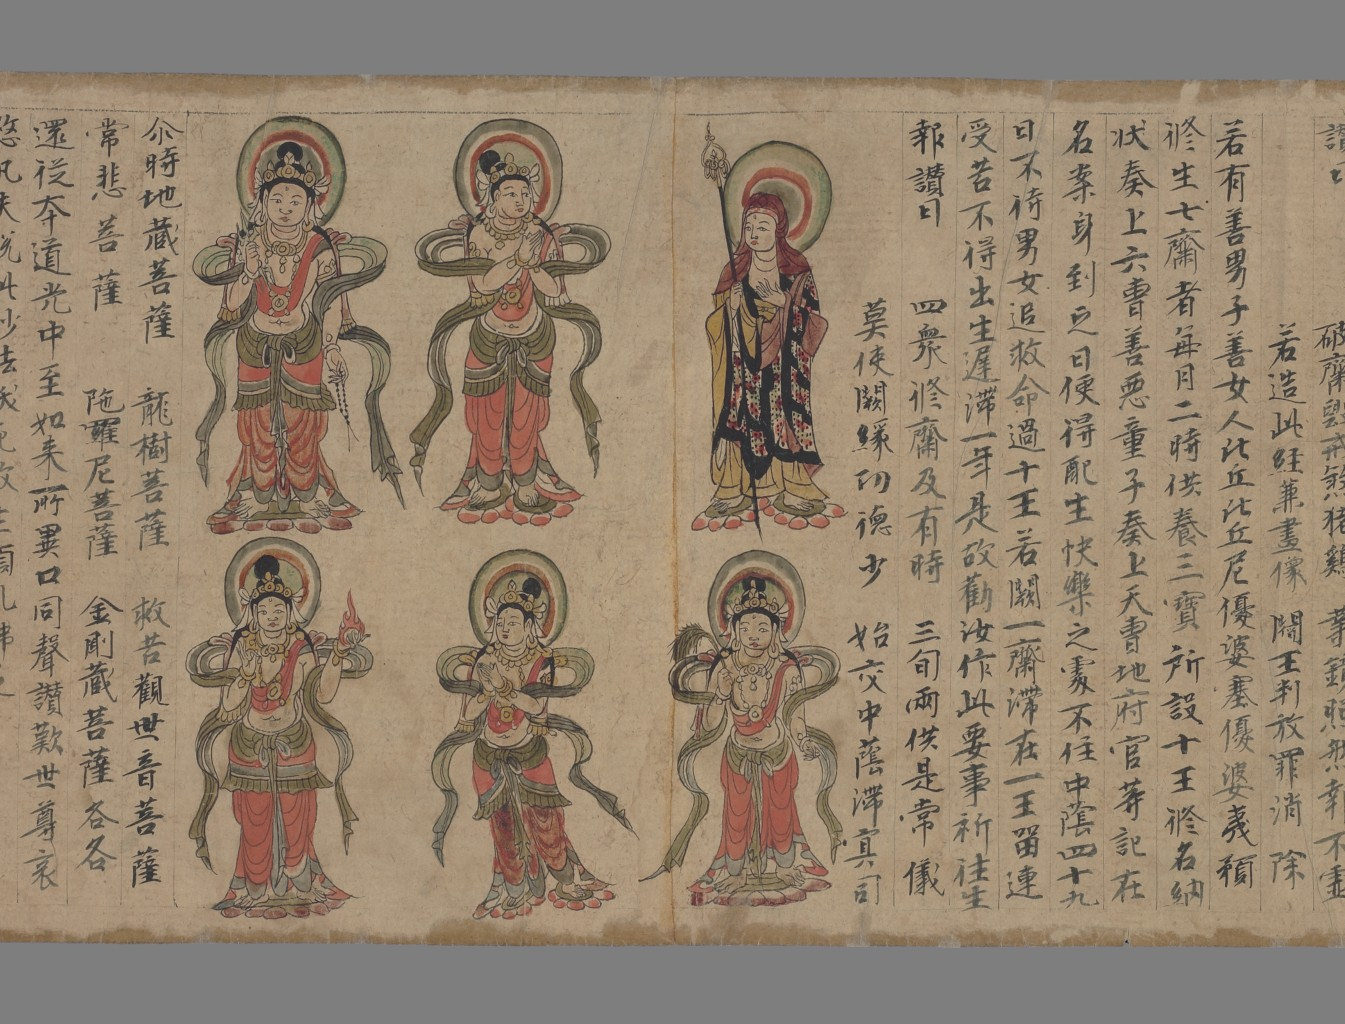 讚曰
破齋毀戒煞猪鷄　業鏡照然報不虛
若造此經兼畫像　閻王判放罪消除
若有善男子善女人比丘比丘尼優婆塞優婆夷預
修生七齋者每月二時供養三寶所設十王修名納
狀奏上六曹善惡童子奏上天曹地府官等記在
名案身到之日便得配生快樂之處不住中蔭四十九
日不待男女追救命過十王若闕一齋滯在一王留連
受苦不得出生遲滯一年是故勸汝作此要事祈往生
報讚曰
四衆修齋及有時　三旬兩供是常儀
莫使闕緣功德少　始交中蔭滯冥司
尒時地藏菩薩　龍樹菩薩　救苦觀世音菩薩
常悲菩薩　陁羅尼菩薩　金剛藏菩薩各各
還從夲道光中至如来所異口同聲讚歎世尊哀
愍凡夫說此妙法